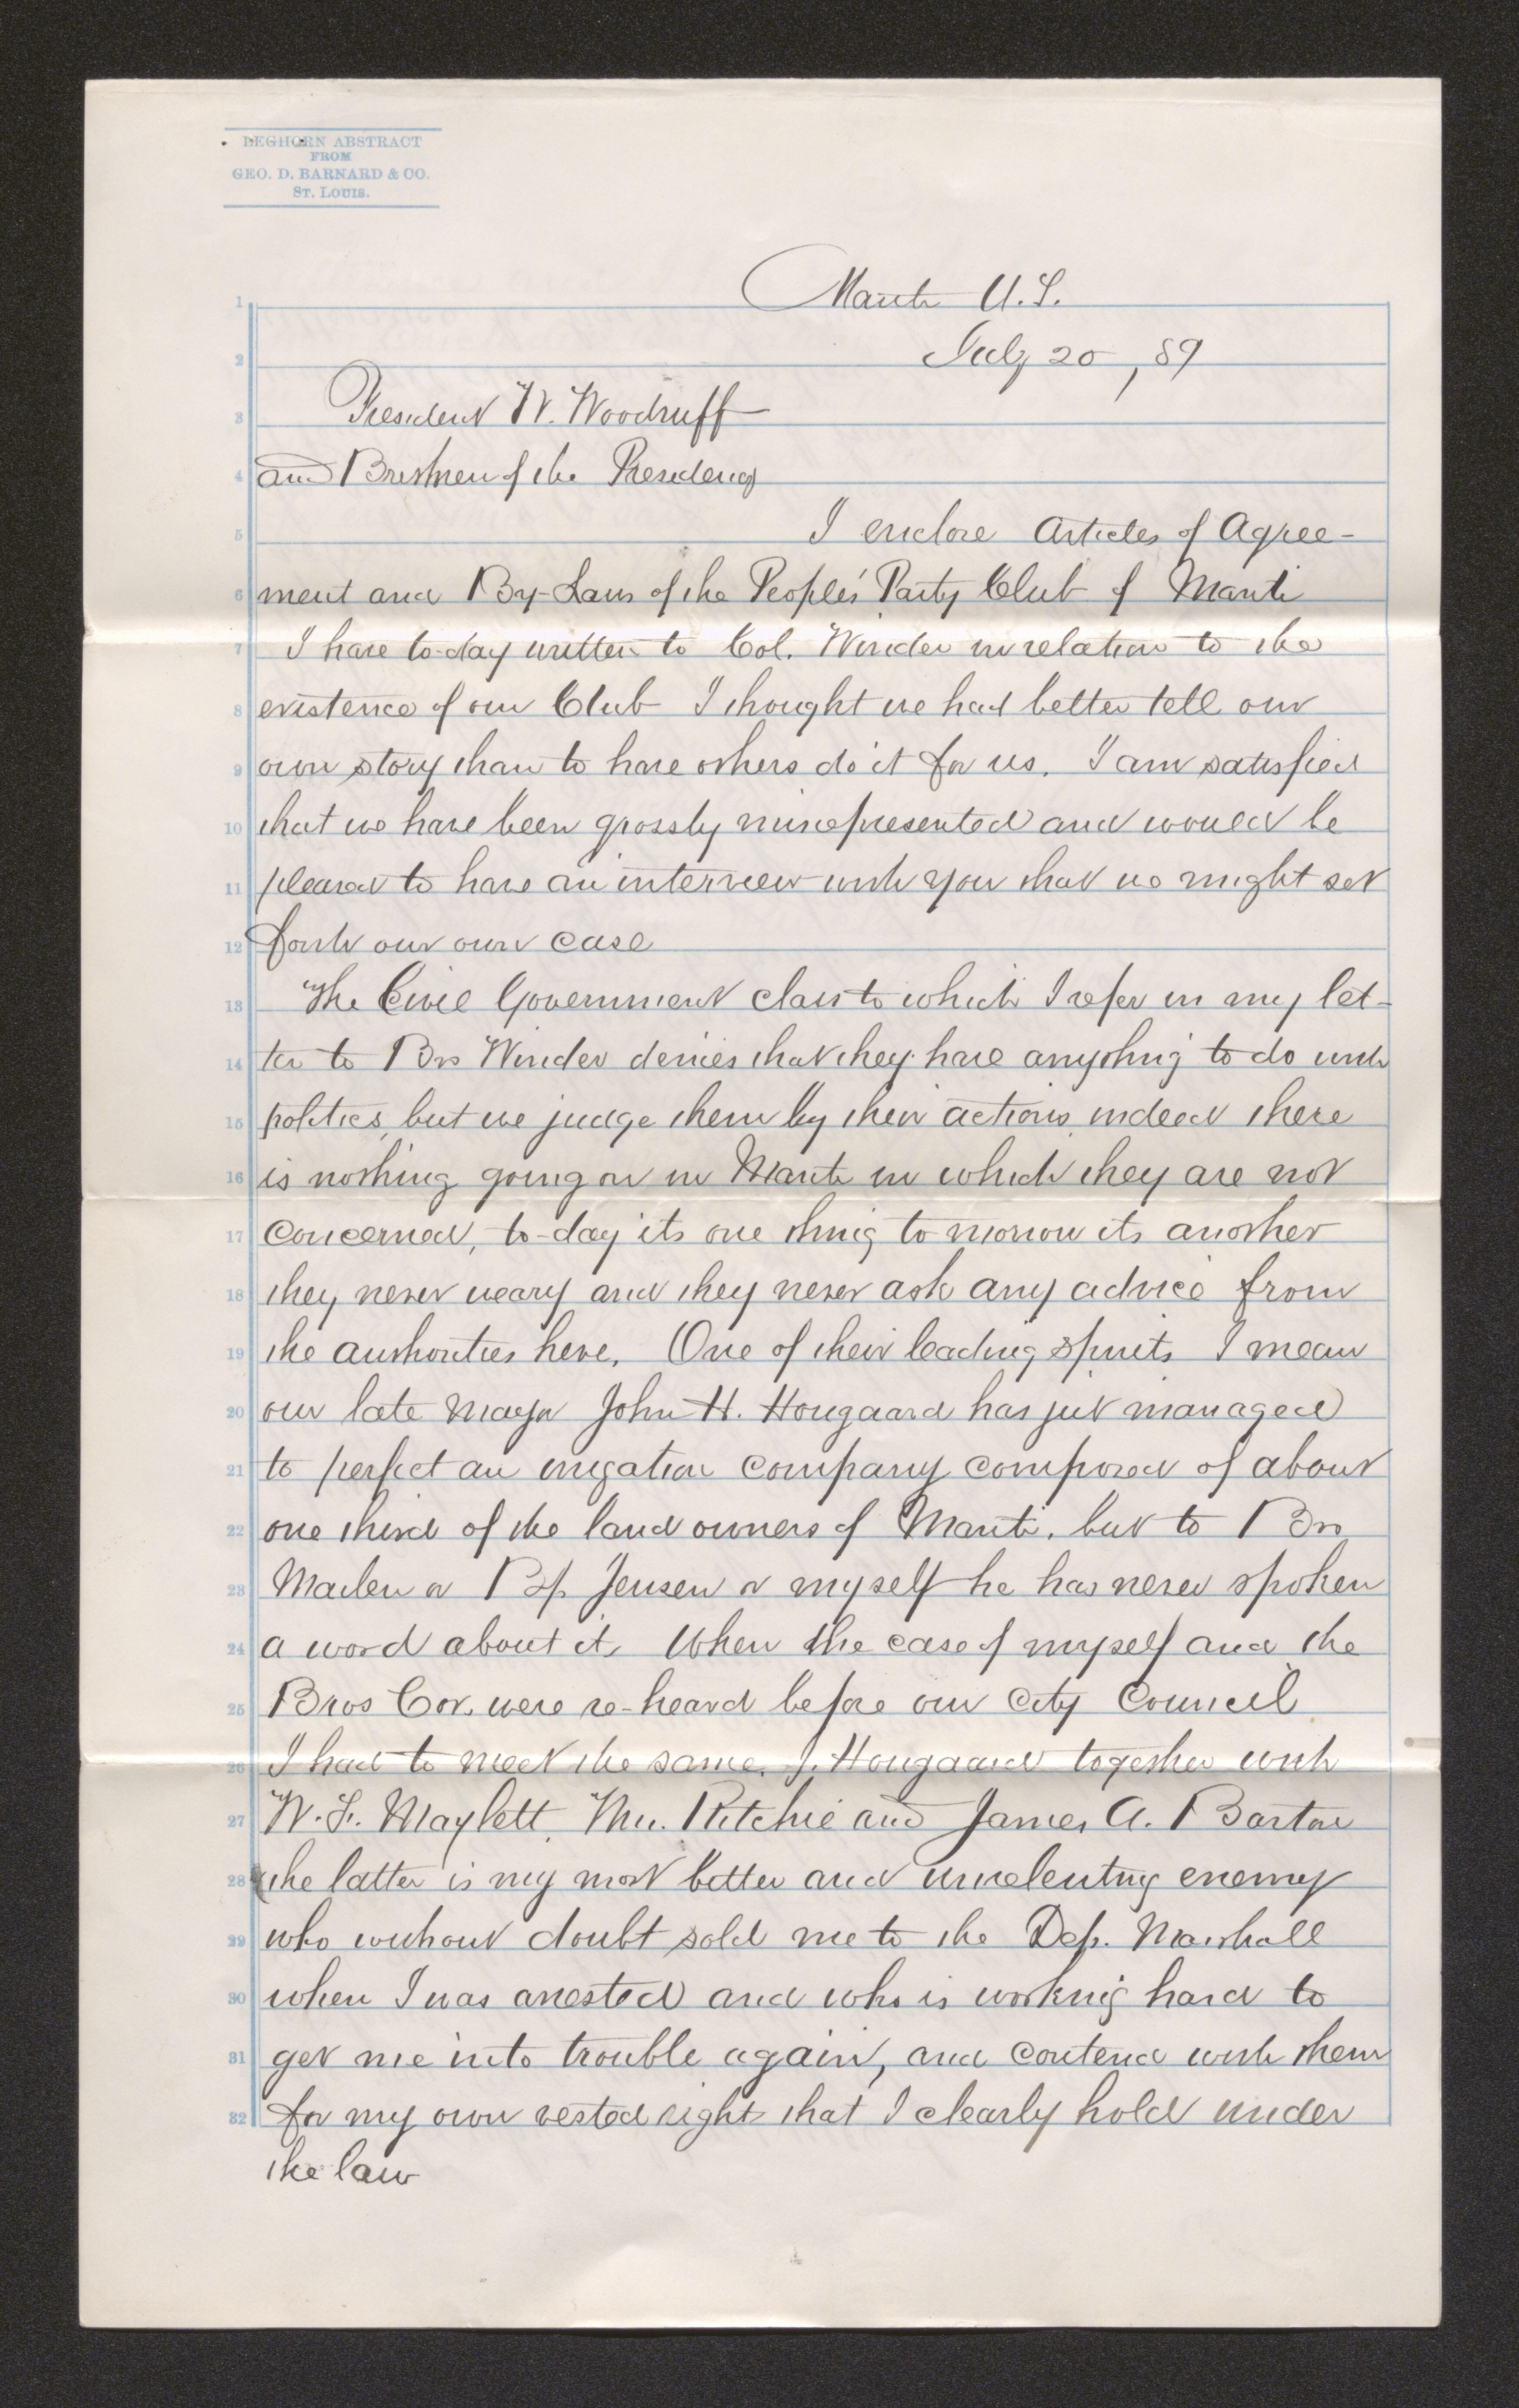 DEGHORN ABSTRACT
FROM
GEO. D. BARNARD & CO.
ST. LOUIS.
1 Manti U.T.
2 July 20, 89
3 President W. Woodruff
4 and Brethren of the Presidency
5 I enclose Articles of Agree-
6 ment and By-Laws of the People's Party Club of Manti
7 I have to-day written to Col. Winder in relation to the
8 existence of our Club I thought we had better tell our
9 own story than to have others do it for us. I am satisfied
10 that we have been grossly misrepresented and would be
11 pleased to have an interview with you that we might set
12 forth our own case
13 The Civil Government class to which I refer in my let-
14 ter to Bro Winder denies that they have anything to do with
15 politics, but we judge them by their actions, indeed there
16 is nothing going on in Manti in which they are not
17 concerned, to-day its one thing to-morrow its another
18 they never weary and they never ask any advice from
19 the authorities here. One of their leading spirits I mean
20 our late Mayor John H. Hougaard has just managed
21 to perfect an irrigation company composed of about
22 one third of the land owners of Manti, but to Bro
23 Maiben or Bp. Jensen or myself he has never spoken
24 a word about it. When the case of myself and the
25 Bros Cox were re-heard before our City Council
26 I had to meet the same J. Hougaard together with
27 W. F. Maylett, Mr. Ritchie and James A. Barton
28 the latter is my most bitter and unrelenting enemy
29 who without doubt sold me to the Dep. Marshall
30 when I was arrested and who is working hard to
31 get me into trouble again, and contend with them
32 for my own vested rights that I clearly hold under
the law